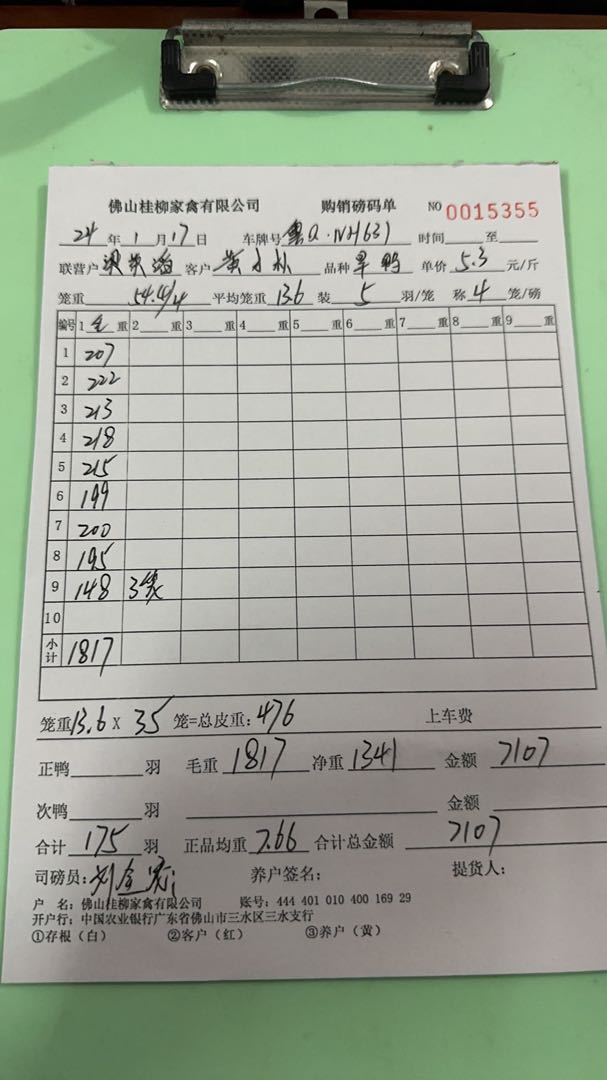 佛山桂柳家禽有限公司 购销磅码单 NO 0015355
24年1月17日 车牌号 粤Q·NH631 时间 至
联营户 客户 黄 品种 旱鸭 单价 5.3 元/斤
笼重 54.4/4 平均笼重 13.6 装 5 羽/笼 称 4 笼/磅
编号 1 毛 重 2 重 3 重 4 重 5 重 6 重 7 重 8 重 9 重
1 207
2 222
3 213
4 218
5 215
6 199
7 200
8 195
9 148 3
10
小计 1817
笼重 13.6 X 35 笼=总皮重: 476 上车费
正鸭 羽 毛重 1817 净重 1341 金额 7107
次鸭 羽 金额
合计 175 羽 正品均重 7.66 合计总金额 7107
司磅员: 刘 养户签名: 提货人:
户 名: 佛山桂柳家禽有限公司 账号: 444 401 010 400 169 29
开户行: 中国农业银行广东省佛山市三水区三水支行
①存根（白） ②客户（红） ③养户（黄）